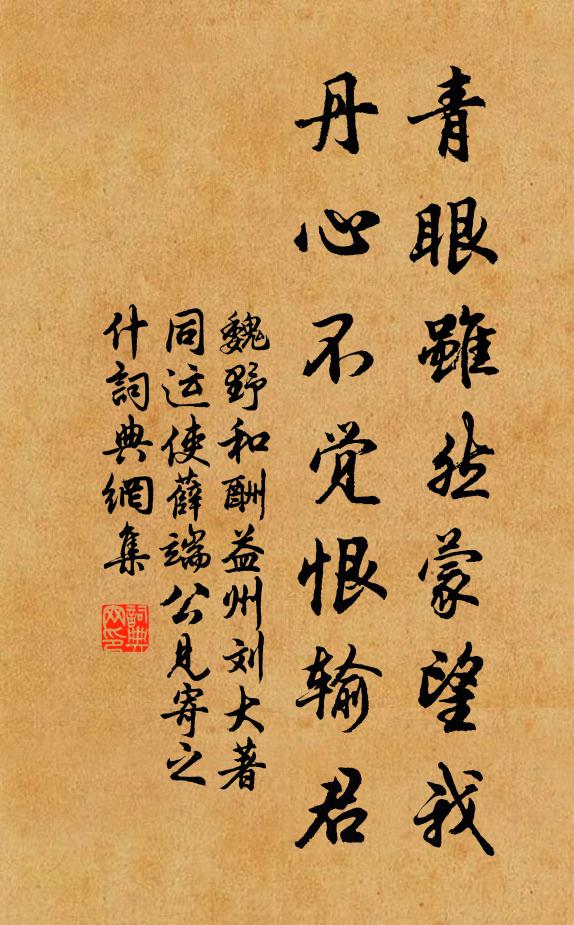 青眼雖然蒙望我
丹心不觉恨输君
魏野和酬益州刘大著
同运使薛端公見寄之
什詞典網集
詞典
网印